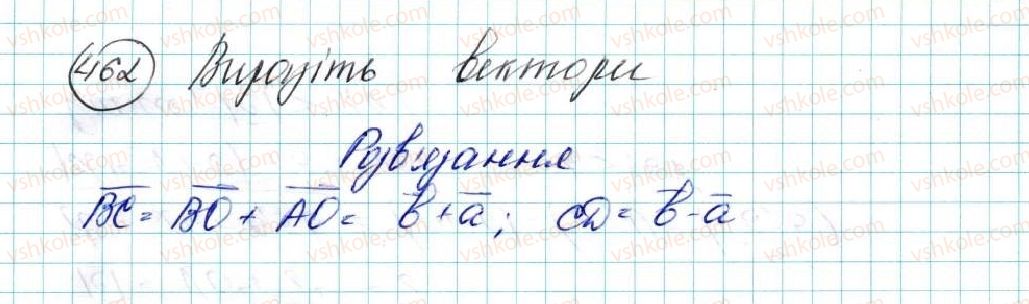 462 Виразіть вектори
Розв'язання
BC = BO + AO = b + a; CD = b - a